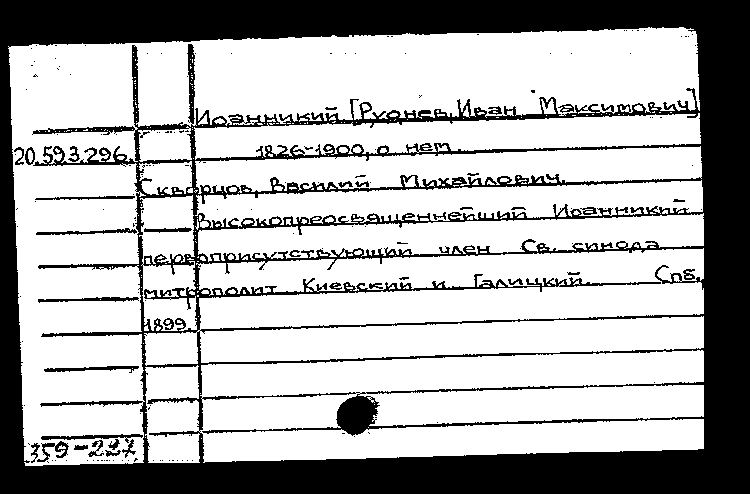 Иоанникий [Руднев, Иван Максимович]
20.593.296. 1826-1900, о нем.
Скворцов, Василий Михайлович.
Высокопреосвященнейший Иоанникий
первоприсутствующий член Св. синода
митрополит Киевский и Галицкий. Спб.,
1899.
359-227.